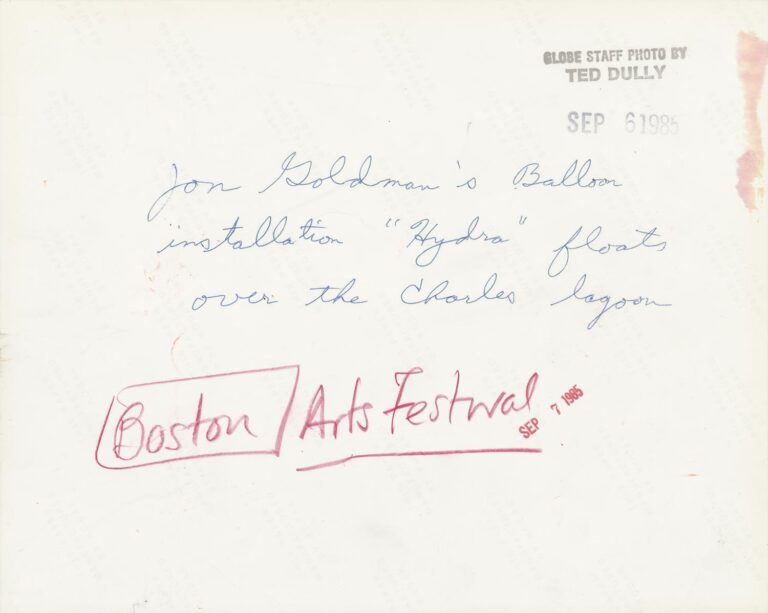 GLOBE STAFF PHOTO BY
TED DULLY
SEP 6 1985
Jon Goldman's Balloon
installation "Hydra" floats
over the Charles lagoon
Boston Arts Festival
SEP 7 1985